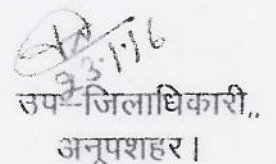 23.1.16
उप-जिलाधिकारी,,
अनूपशहर।